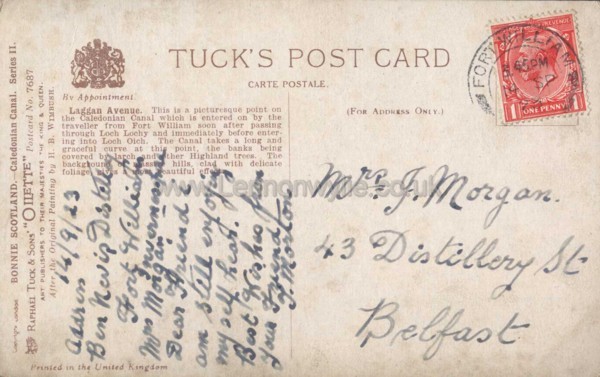 TUCK'S POST CARD
CARTE POSTALE.
By Appointment.
(For Address Only.)
Laggan Avenue. This is a picturesque point on
the Caledonian Canal which is entered on by the
traveller from Fort William soon after passing
through Loch Lochy and immediately before enter-
ing into Loch Oich. The Canal takes a long and
graceful curve at this point, the banks being
covered by larch and other Highland trees. The
background of massy hills clad with delicate
foliage gives a most beautiful effect.
BONNIE SCOTLAND.—Caledonian Canal. Series II.
RAPHAEL TUCK & SONS' "OILETTE" Postcard No. 7687.
ART PUBLISHERS TO THEIR MAJESTIES THE KING & QUEEN.
After the Original Painting by H. B. WIMBUSH.
Printed in the United Kingdom
Address 14/9/23
Ben Nevis Distillery
Fort William
Inverness
Mrs Morgan
Dear Friend I
am still enjoying
myself best
Best Wishes from
your Friend
Morton
Mrs. J. Morgan.
43 Distillery St
Belfast
FORT WILLIAM
PM
SP
1 ONE PENNY 1
www.Lennonwylie.co.uk